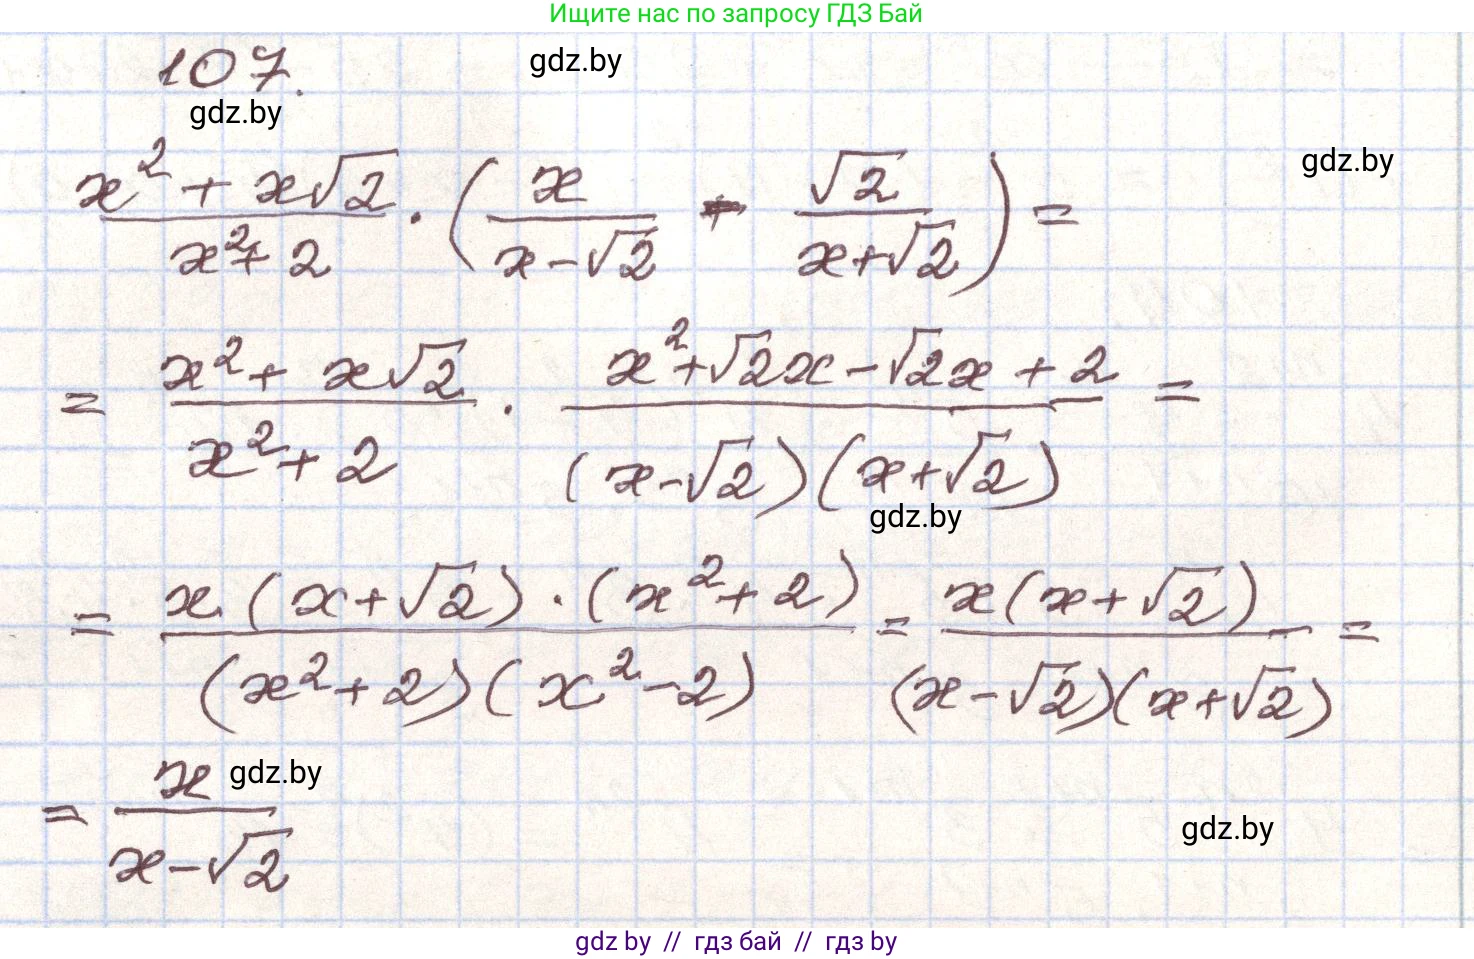 Ищите нас по запросу ГДЗ Бай
107.
gdz.by
gdz.by
gdz.by
(x² + x√2)/(x² + 2) · (x/(x - √2) - √2/(x + √2)) =
= (x² + x√2)/(x² + 2) · (x² + √2x - √2x + 2)/((x - √2)(x + √2)) =
gdz.by
= (x(x + √2) · (x² + 2))/((x² + 2)(x² - 2)) = (x(x + √2))/((x - √2)(x + √2)) =
= x/(x - √2)
gdz.by
gdz.by
gdz by // гдз бай // гдз by